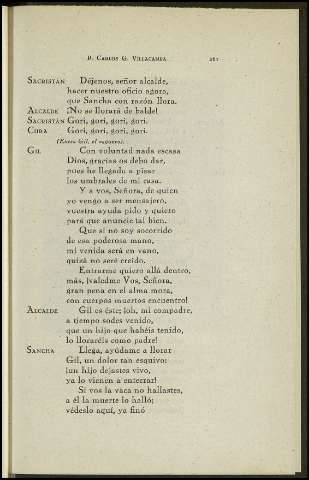 P. CARLOS G. VILLACAMPA 261
SACRISTÁN Déjenos, señor alcalde,
hacer nuestro oficio agora,
que Sancha con razón llora.
ALCALDE ¡No se llorará de balde!
SACRISTÁN Gori, gori, gori, gori.
CURA Gori, gori, gori, gori.
(Entra Gil, el vaquero).
GIL Con voluntad nada escasa
Dios, gracias os debo dar,
pues he llegado a pisar
los umbrales de mi casa.
Y a vos, Señora, de quien
yo vengo a ser mensajero,
vuestra ayuda pido y quiero
para que anuncie tal bien.
Que si no soy socorrido
de esa poderosa mano,
mi venida será en vano,
quizá no seré creído.
Entrarme quiero allá dentro,
más, ¡valedme Vos, Señora,
gran pena en el alma mora,
con cuerpos muertos encuentro!
ALCALDE Gil es éste; ¡oh, mi compadre,
a tiempo sodes venido,
que un hijo que habéis tenido,
lo lloraréis como padre!
SANCHA Llega, ayúdame a llorar
Gil, un dolor tan esquivo:
¡un hijo dejastes vivo,
ya lo vienen a enterrar!
Si vos la vaca no hallastes,
a él la muerte lo halló;
védeslo aquí, ya finó